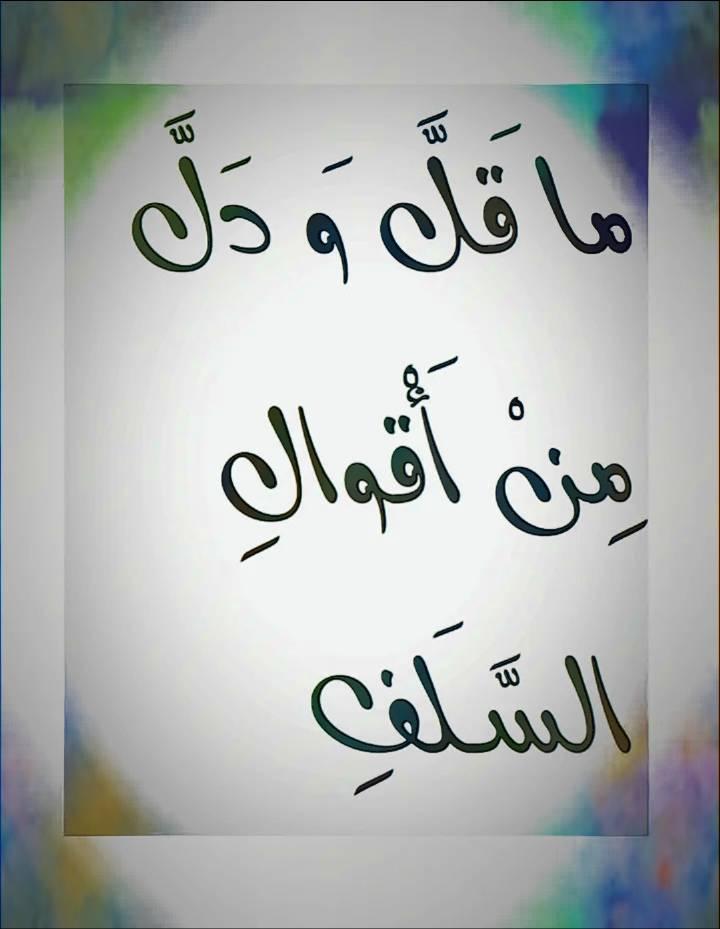 ما قَلَّ وَ دَلَّ
مِنْ أَقْوالِ
السَّلَفِ